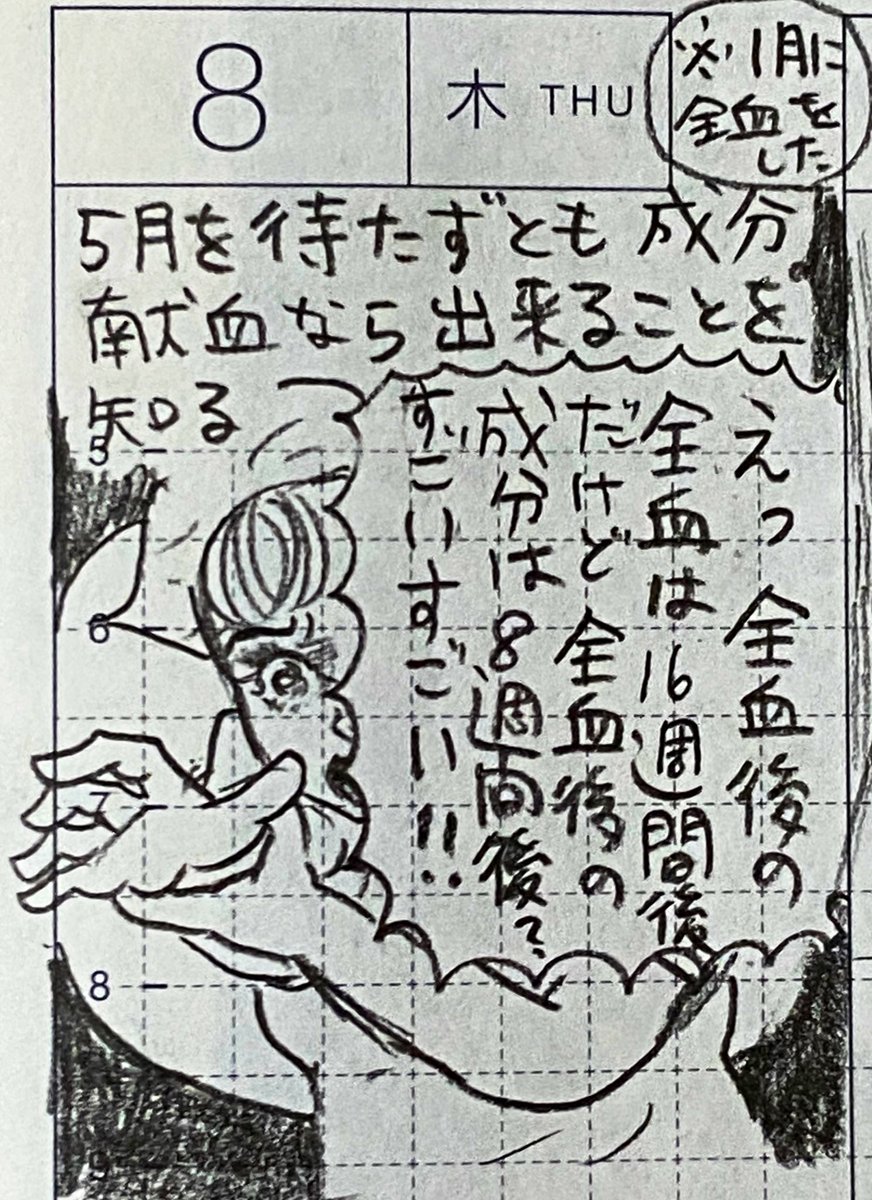 8
木 THU
※1月に
全血を
した
5月を待たずとも成分
献血なら出来ることを
知る
えっ 全血後の
全血は16週間後
だけど 全血後の
成分は8週間後で
すごいすごい!!
5
6
7
8
9